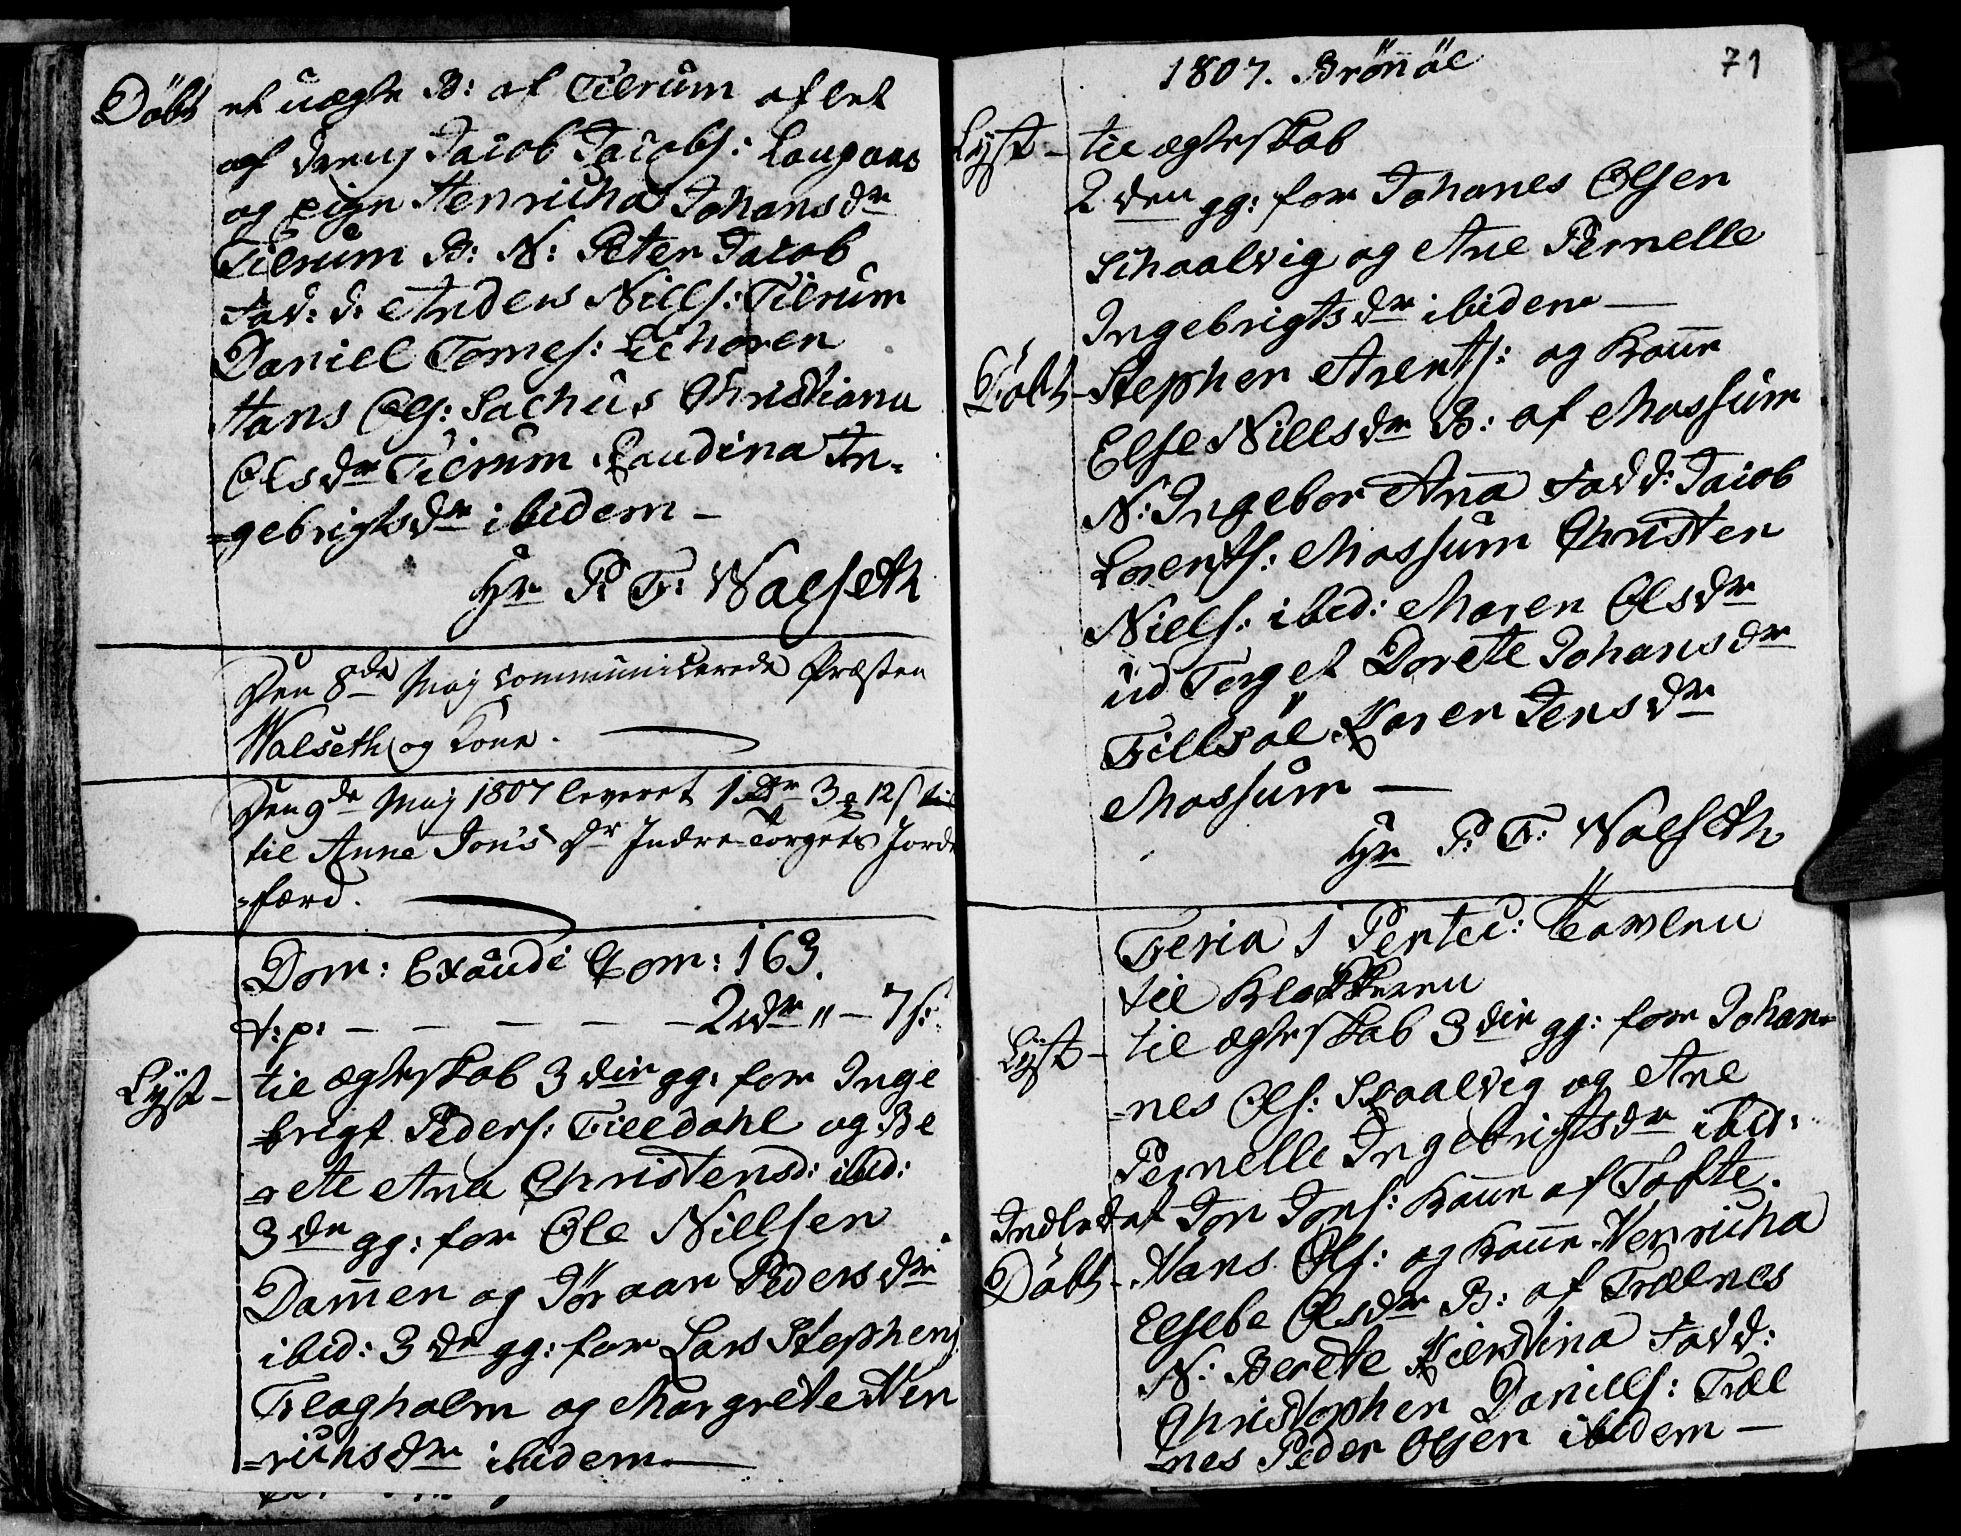 Döbt et uægte B: af Tilrum aflet
af dreng Jacob Jacobs:
og pige Henricha Johansdr
Tilrum B: N: Peter Jacob
Fad: d: Anders Niels: Tilrum
Daniel Tomes:
Hans Ols: Christiana
Olsdr Tilrum Laudina In-
=gebrigtsdr ibidem -
Hr P: T: Walseth
Den 8de Maj communicerede Præsten
Walseth og Kone.
Den 9de Maj 1807 leveret 1 3 12 s til
til Anne Jons Dr Indre-Torgets Jorde
=færd.
Dom: Exaudi Com: 163.
t: p: - - - - - 2 dr " - 7 s:
Lyst - til ægteskab 3die gg: for Inge
=brigt Peders: Tilldahl og Be
=rete Ana Christensd: ibid:
3de gg: for Ole Nillsen
Dam̅en og Jöraan Pedersdr
ibid: 3de gg: for Lars Stephens
Flagholm og Margrete Hen
=richsdr ibidem
1807. Brön̅öe
71
Lyst - til ægteskab
2den gg: for Johanes Olsen
Schaalvig og Ane Pernelle
Ingebrigtsdr ibidem
Döbt - Stephen Arents: og Kone
Else Nillsdr B: af Mossum
N: Ingebor Ana Fadd: Jacob
Lorents: Mossum Christen
Niels: ibid: Maren Olsdr
ud Torget Dorete Johansdr
Tillsöe Karen Jensdr
Mossum
Hr P: T: Walseth
Feria 1 Pentec: Tavlen
til Klokkeren
Lyst - til ægteskab 3die gg: for Johan-
=nes Ols: Skaalvig og Ane
Pernelle Ingebrigtsdr ibid:
Indledet Jon Jons: Kone af Tofte.
Döbt - Hans Ols: og Kone Henricha
Elsebe Olsdr B: af Trælnes
N: Berete Kierstina Fadd:
Christopher Daniels: Træl
=nes Peder Olsen ibidem -